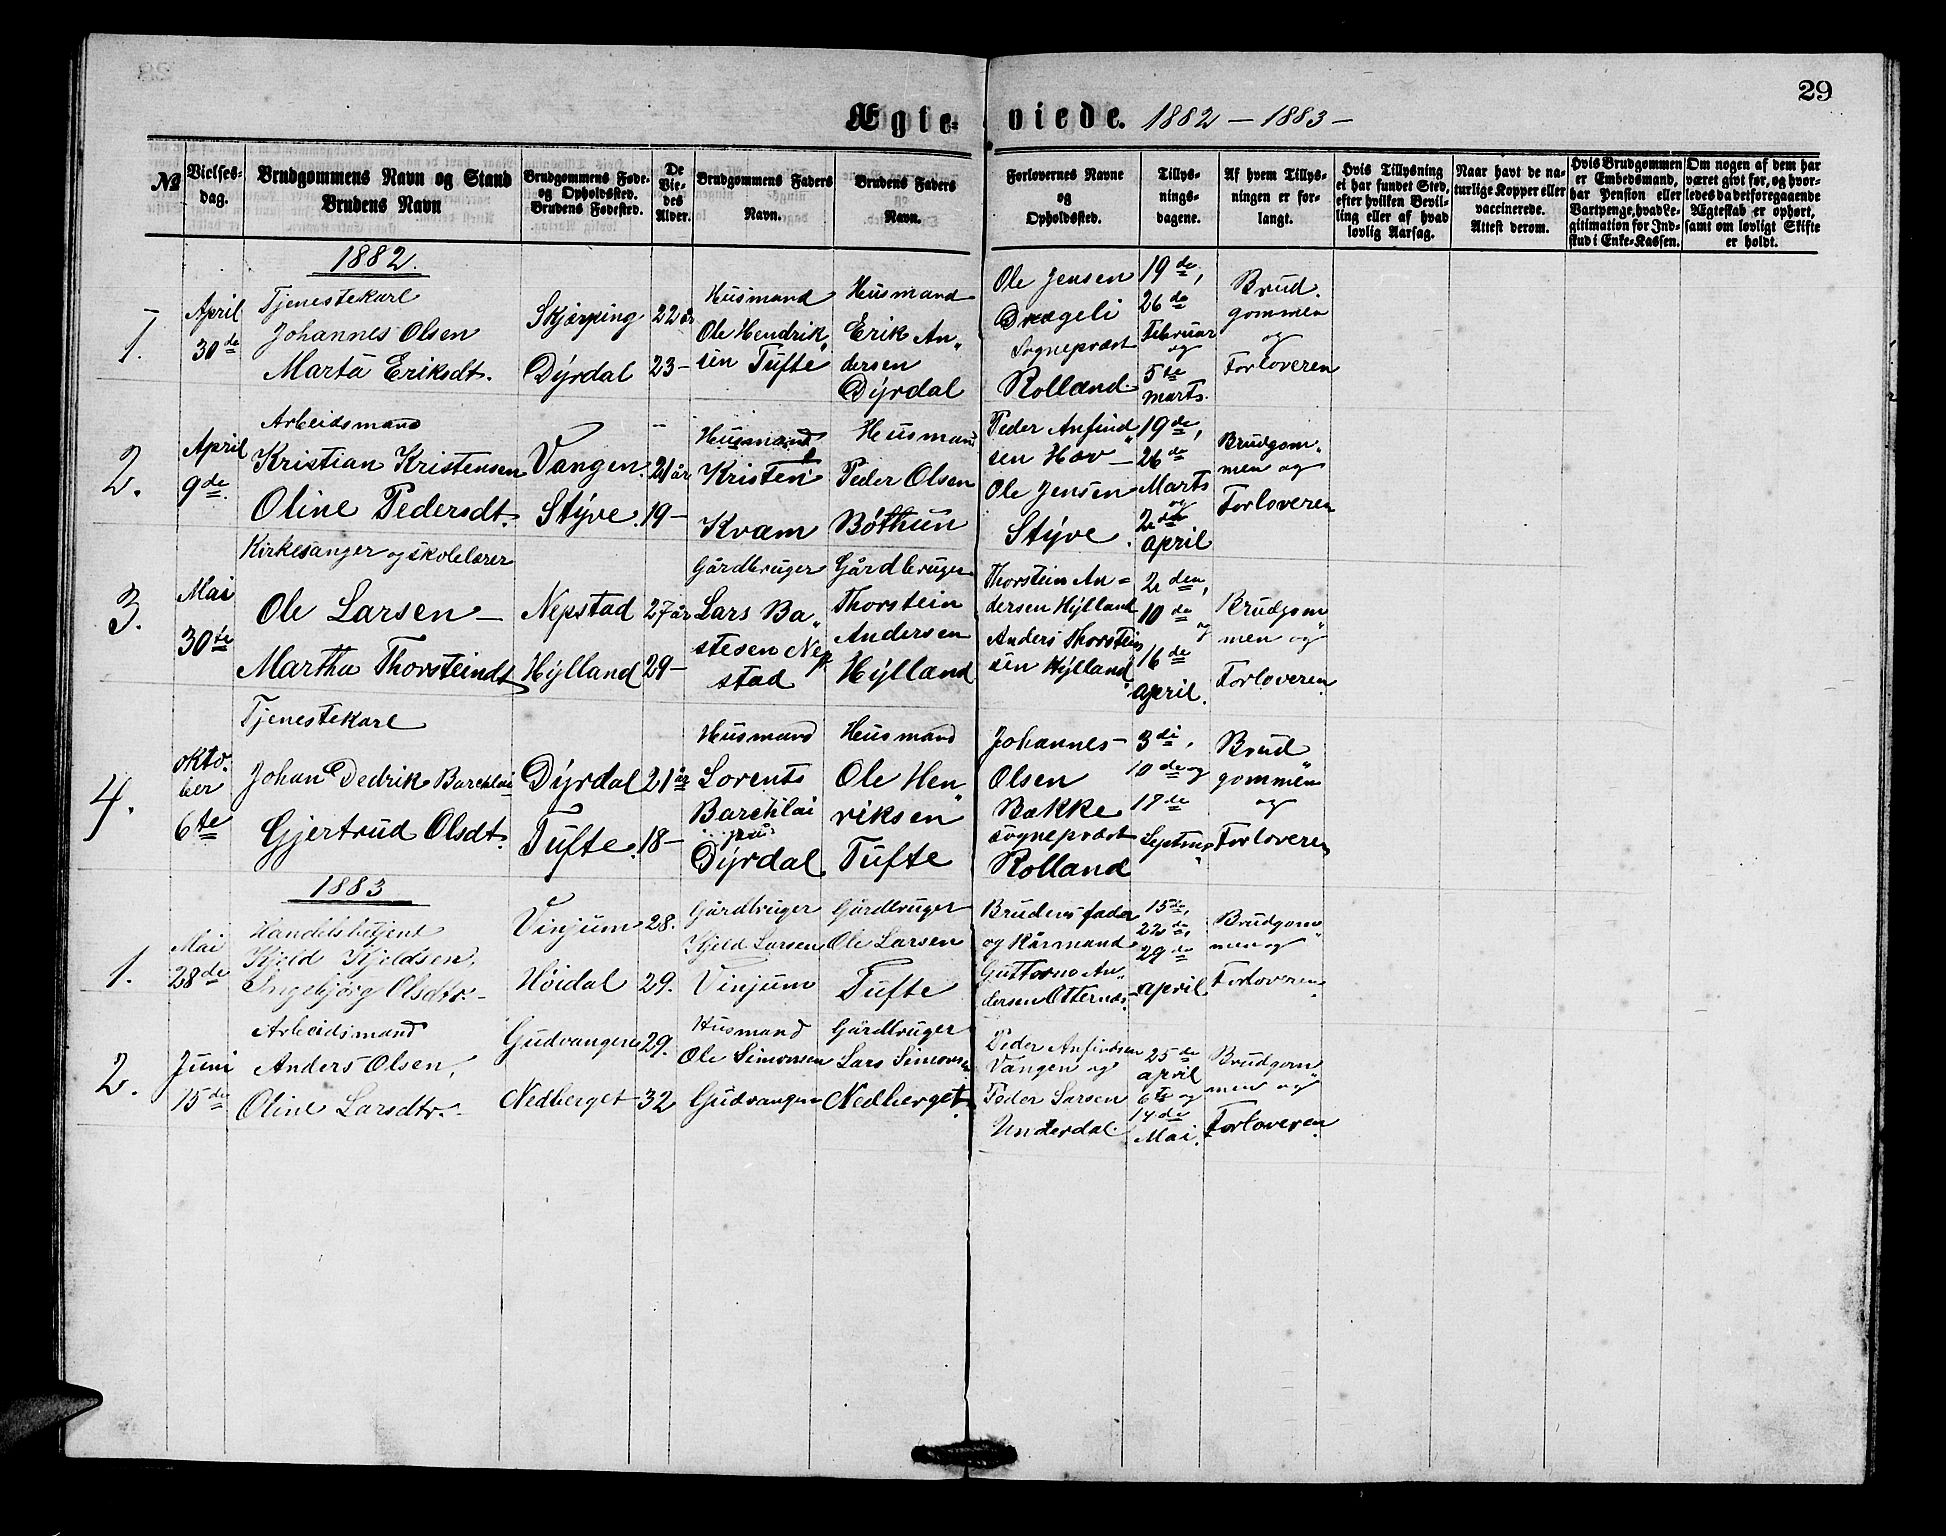 29
Ægte- viede. 1882 – 1883 –
№
Vielses-
dag.
Brudgommens Navn og Stand
Brudens Navn
Brudgommens Føde-
og Opholdssted.
Brudens Fødested.
De
Vie-
des
Alder.
Brudgommens Faders
Navn.
Brudens Faders
Navn.
Forlovernes Navne
og
Opholdssted.
Tillys-
nings-
dagene.
Af hvem Tillys-
ningen er for-
langt.
Hvis Tillysning
ei har fundet Sted,
efter hvilken Bevil-
ling eller af hvad
lovlig Aarsag.
Naar havt de na-
turlige Kopper eller
vaccinerede.
Attest derom.
Hvis Brudgommen
er Embedsmand,
har Pension eller
Vartpenge, hvad Le-
gitimation for Ind-
skud i Enke-Kassen.
Om nogen af dem har
været givt før, og hvor-
ledes da det foregaaende
Ægteskab er ophørt,
samt om lovligt Skifte
er holdt.
1882.
1.
April
30de
Tjenestekarl
Johannes Olsen
Marta Eriksdt.
Skjerping
Dÿrdal
22 år
23 –
Husmand
Ole Hendrik„
sen Tufte
Husmand
Erik An„
dersen
Dÿrdal
Ole Jensen
Drægeli
Sogneprest
Rolland.
19de,
26de
Februar
og
5te
marts.
Brud.
gommen
og
Forloveren
2.
April
9de
Arbeidsmand
Kristian Kristensen
Oline Pedersdt.
Vangen.
Stÿve.
21 år
19 –
Husmand
Kristen
Kvam
Husmand
Peder Olsen
Bøthun
Peder Anfind„
sen Hov –
Ole Jensen
Stÿve.
19de,
26de
Marts
og
2den
april
Brudgom„
men og
Forloveren
3.
Mai
30te
Kirkesanger og skolelærer
Ole Larsen –
Martha Thorsteindt
Nepstad
Hÿlland
27 år
29 –
Gårdbruger
Lars Ba„
stesen Nep
stad
Gårdbruger
Thorstein
Andersen
Hÿlland
Thorstein An=
dersen Hÿlland
Anders Thorstein
sen Hÿlland
2den,
10de og
16de
april.
Brudgom„
men og
Forloveren
4.
okto.
ber
6te
Tjenestekarl
Johan Dedrik Barchlai
Gjertrud Olsdt.
Dÿrdal
Tufte.
21 år
18 –
Husmand
Lorents
Barchlai
på
Dÿrdal
Husmand
Ole Hen„
riksen
Tufte
Johannes
Olsen
Bække
sogneprest
Rolland
3di,
10de og
17de
Septmr
Brud„
gommen
og
Forloveren
1883
1.
Mai
28de
Handelsbetjent
Kjeld Kjeldsen,
Ingebjørg Olsdtr. –
Vinjum
Høidal
28.
29.
Gårdbruger
Kjeld Larsen
Vinjum
Gårdbruger
Ole Larsen
Tufte
Brudens fader
og Kårmand
Guttorm An„
dersen Otternæs
15de,
22de,
29de
april
Brudgom„
men og
Forloveren
2.
Juni
15de
Arbeidsmand
Anders Olsen,
Oline Larsdtr. –
Gudvangen
Nedberget
29.
32
Husmand
Ole Simonsen
Gudvangen
Gårdbruger
Lars Simons„
Nedberget
Peder Anfindsen
Vangen og
Peder Larsen
Underdal.
25de
april
6te og
14de
Mai.
Brudgom„
men og
Forloveren